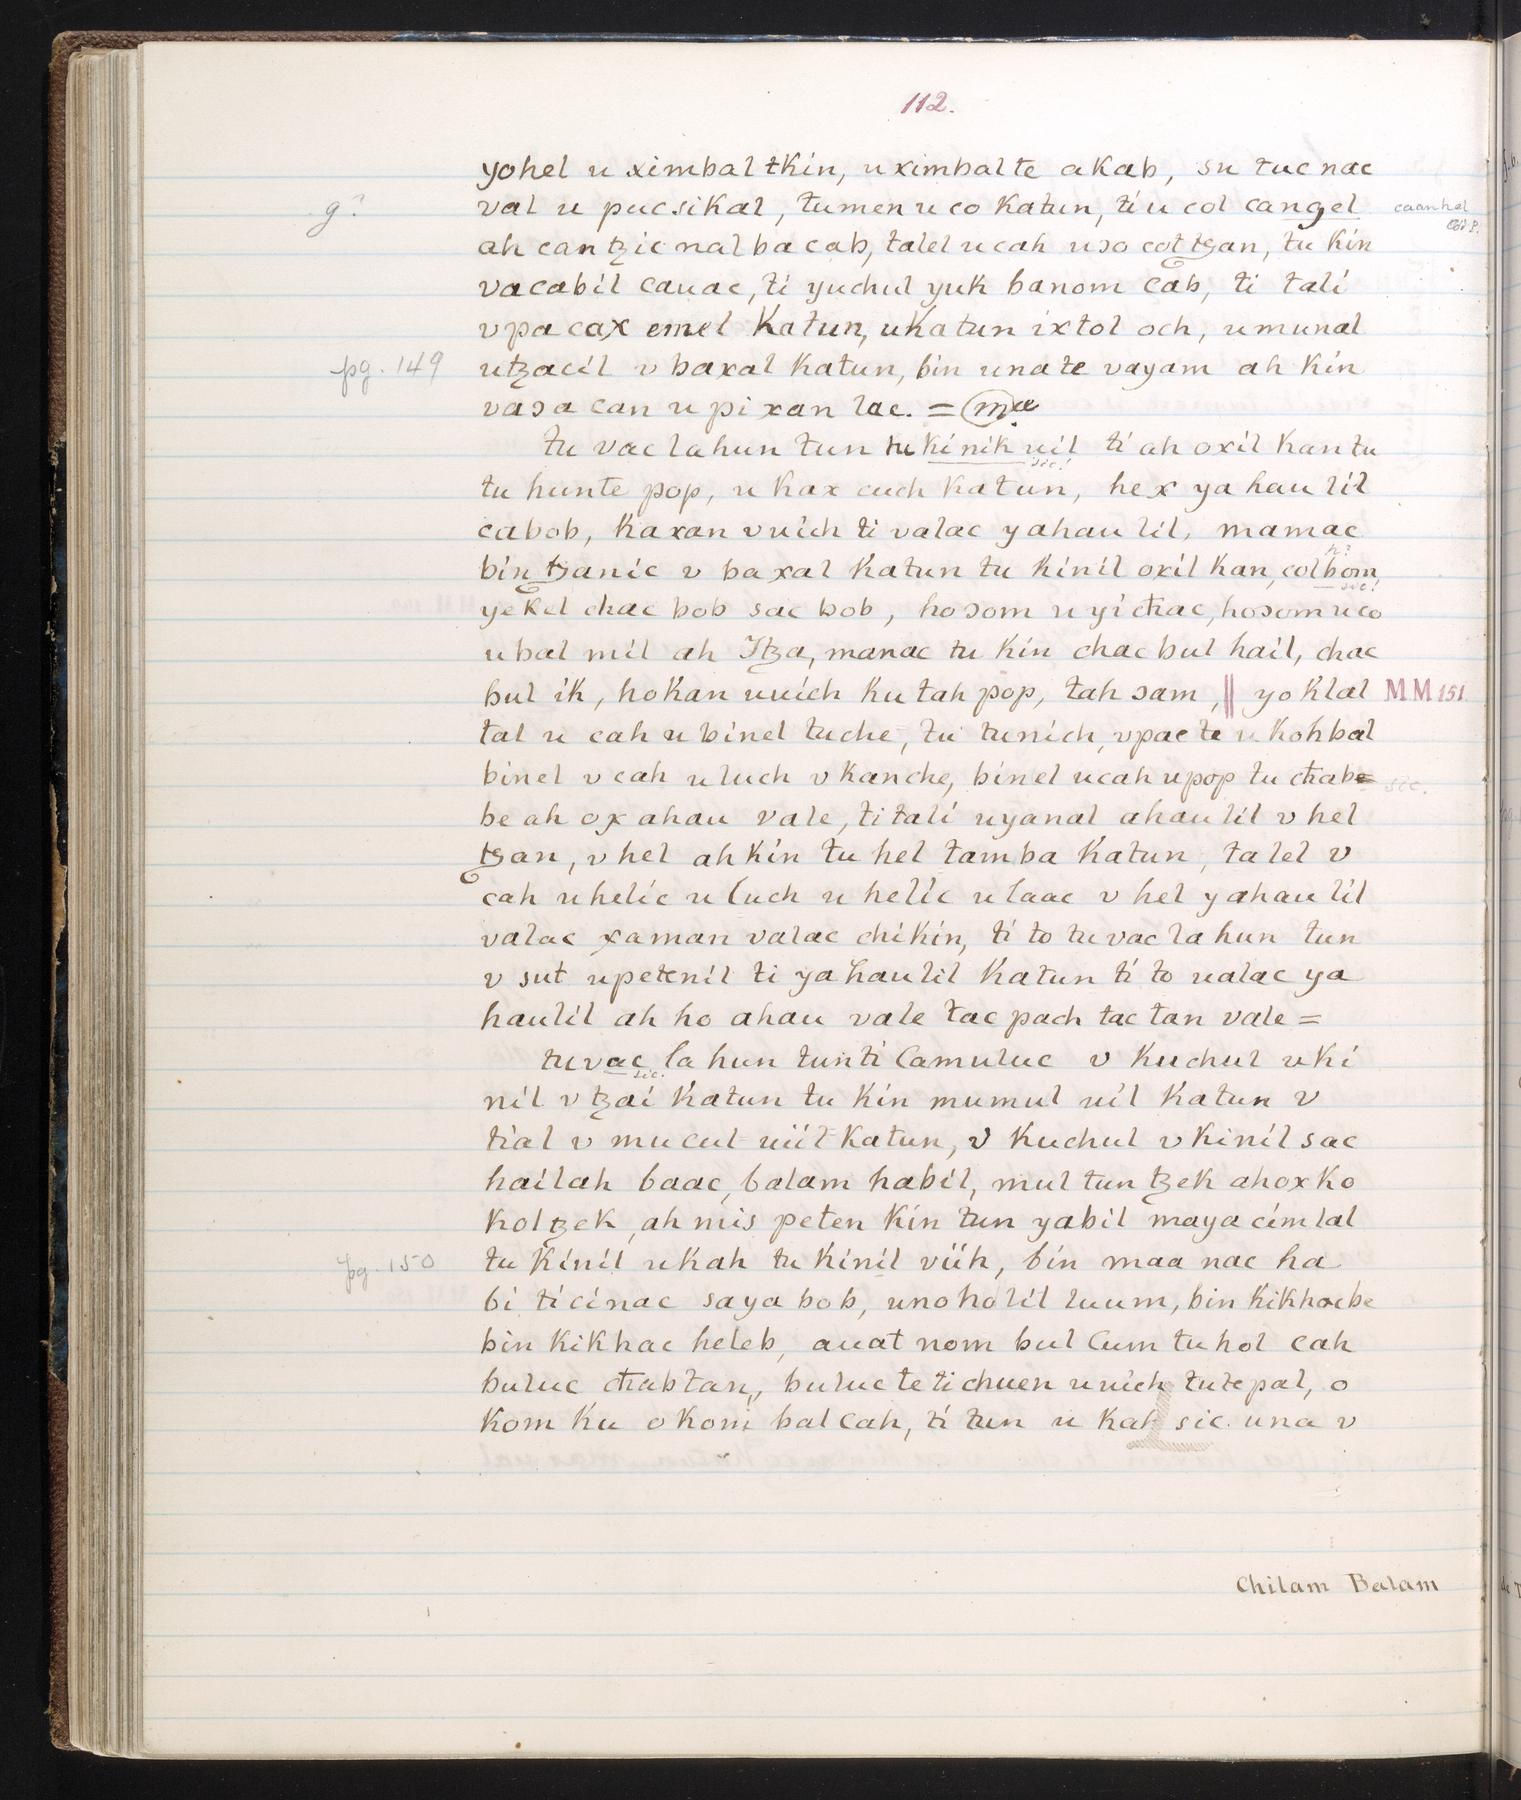 112.
yohel u ximbal tkin, u ximbal te akab, su tucnac
g? val u pucsikal, tumen u co katun, ti u col cangel caanhel Cod P.
ah can tzic nal bacab, talel u cah u ɔo cot tzan, tu kin
vacabil cauac, ti yuchul yuk banom cab, ti tali
v pa cax emel katun, ukatun ixtol och, u munal
pg. 149 utzacil v baxal katun, bin unate vayam ah kin
vaɔa can u pixan lac. = ma
tu vac lahun tun tu kinik uil ti ah oxil kan tu
sic!
tu hunte pop, u kax cuch katun, hex yahau lil
cabob, kaxan v uich ti valac yahau lil, mamac
h?
bin tzanic v baxal katun tu kinil oxil kan, colbom
sic!
yekel chac bob sac bob, hoɔom u yichac, hoɔom u co
u bal mil ah Itza, manac tu kin chac bul hail, chac
bul ik, hokan u uich ku tah pop, tah ɔam, || yoklal MM 151
tal u cah u binel tuche, tu tunich, v pacte u kohbal
binel v cah u luch v kanche, binel u cah u pop tu chabe sic.
be ah ox ahau vale, ti tali uyanal ahau lil v hel
tzan, v hel ah kin tu hel tamba katun, talel v
cah u helic u luch u helic u laac v hel yahau lil
valac xaman valac chikin, ti to tu vac lahun tun
v sut u petenil ti yahaulil katun ti to ualac ya
haulil ah ho ahau vale tac pach tac tan vale =
tu vac lahun tun ti Camuluc v kuchul u ki
sic.
nil v tzai katun tu kin mumul uil katun v
tial v mucul uiil katun, v kuchul v kinil sac
hailah baac, balam habil, mul tun tzek ahoxko
kol tzek, ah mis peten kin tun yabil maya cimlal
pg. 150 tu kinil ukah tu kinil viih, bin maa nac ha
bi ticinac saya bob, u noholil luum, bin kikhacbe
bin kikhac heleb, auat nom bul Cum tu hol cah
buluc chabtan, buluc te ti chuen u uich tu te pal, o
kom ku okom bal cah, ti tun u kah sic una v
Chilam Balam